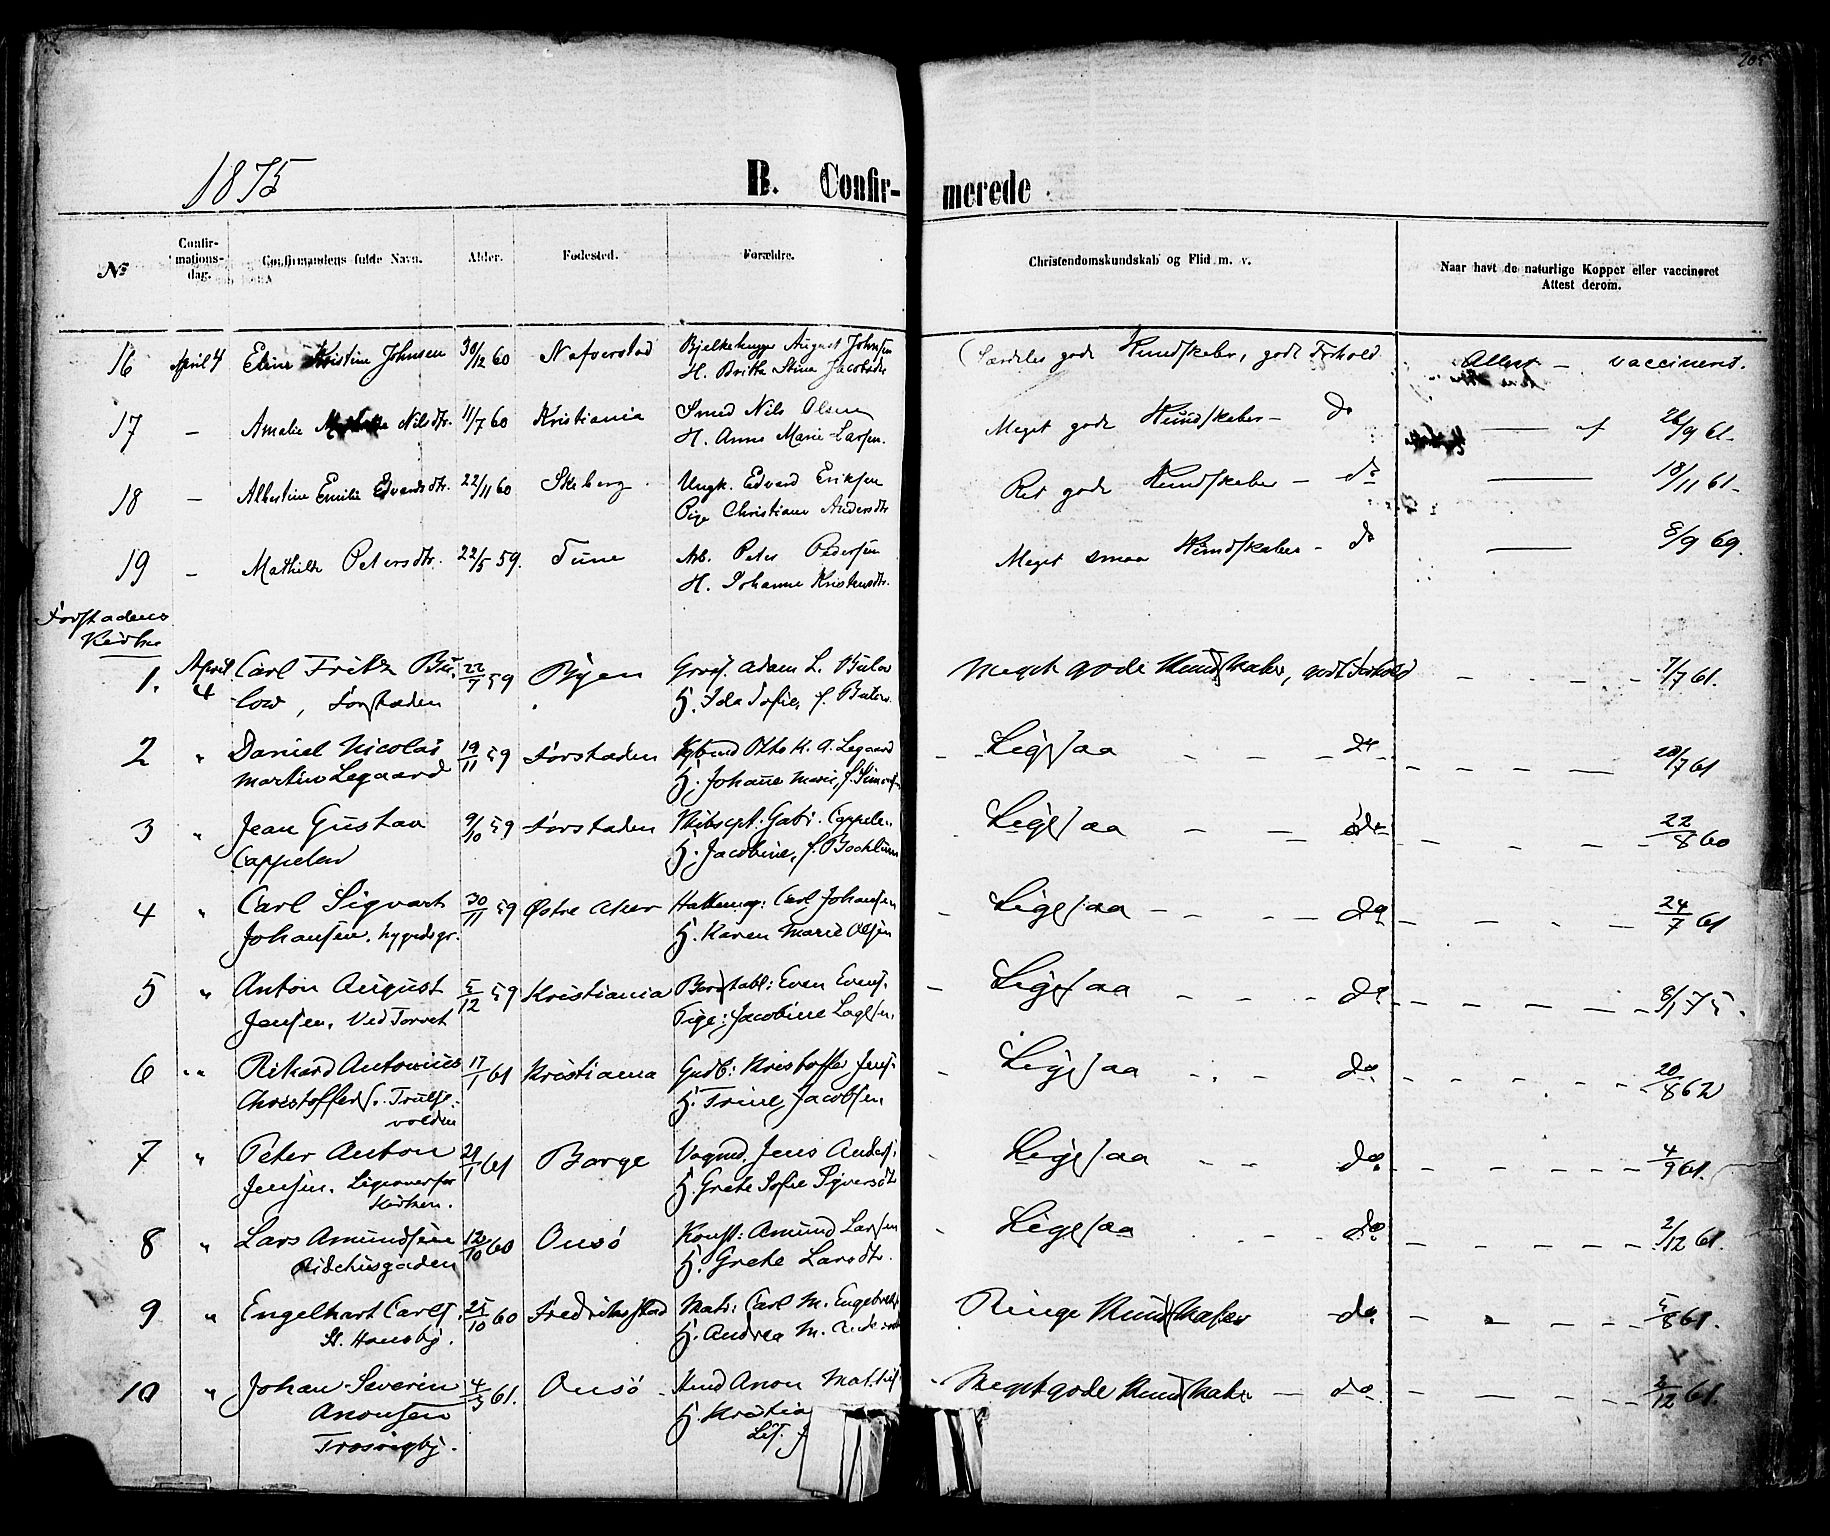 205
1875
B. Confir-
merede
№
Confir-
mations-
dag.
Confirmandens fulde Navn.
Alder.
Fødested.
Forældre.
Christendomskundskab og Flid m. v.
Naar havt de naturlige Kopper eller vaccineret
Attest derom.
16 April 4 Eline Kristine Johnsen 30/12 60 Nafverstad Bjelkehugger August Johnsen
H. Britta Stina Jacobsdtr
Særdeles gode Kundskaber, godt Forhold Attest - vaccineret.
17 - Amalie Nilsdtr. 11/7 60 Kristiania Smed Nils Olsen
H. Anne Marie Larsen.
Meget gode Kundskaber - do 26/9 61-
18 - Albertine Emilie Edvardsdtr. 22/11 60 Skeberg Ungk. Edvard Eriksen
Pige Christiane Andersdtr
Ret gode Kundskaber - do 18/11 61-
19 - Mathilde Petersdtr. 22/5 59. Tune Arb. Peter Pedersen
H. Johanne Kristensdtr.
Meget smaa Kundskaber - do 8/9 69.
Forstadens
Kirke
1. April 4 Carl Fritz Bü- 22/7 59 Byen Gross. Adam L. Bülow
low, Forstaden H. Ida Sofie, f.
Meget gode Kundskaber, godt Forhold 7/7 61.
2 " Daniel Nicolai 19/11 59 Forstaden Otto K. A. Legaard
Martin Legaard H. Johanne Marie, f.
Ligesaa - - - do 28/7 61
3 " Jean Gustav 9/10 59 Forstaden Skibscpt. Gabr. Cappelen
Cappelen H. Jacobine, f.
Ligesaa - - do 22/8 60
4 " Carl Sigvart 30/11 59 Østre Aker Hattemag: Carl Johansen
Johansen, H. Karen Marie Olsen
Ligesaa - - - do 24/7 61
5 " Anton August 5/12 59 Kristiania Even Evens.
Jensen, Ved Torvet Pige: Jacobine
Ligesaa - - do 8/1 75.
6 " Rikard Antonius 17/1 61 Kristiania Gudb: Kristoffer Jens.
Christoffers. Trulse-
volden H. Trine Jacobsen
Ligesaa - - do 20/8 62
7 " Peter Anton 29/1 61 Borge Vognmd. Jens Anders.
Jensen. Ligeoverfor
Kirken. H. Grete Sofie Syversdtr
Ligesaa - - do 4/9 61.
8 " Lars Amundsen 12/10 60 Onsø Konst: Amund Larsen
Ridehusgaden H. Grete Larsdtr.
Ligesaa - - do 2/12 61.
9 " Engelhart Carls. 25/10 60 Fredrikstad Matr: Carl M.
St. Hansbg. H. Andrea M.
Ringe Kundskaber - do 5/8 61.
10 " Johan Severin 4/3 61. Onsø -
Anonsen
Trosvigbg. H.
Meget gode Kundskaber - do 2/12 61.